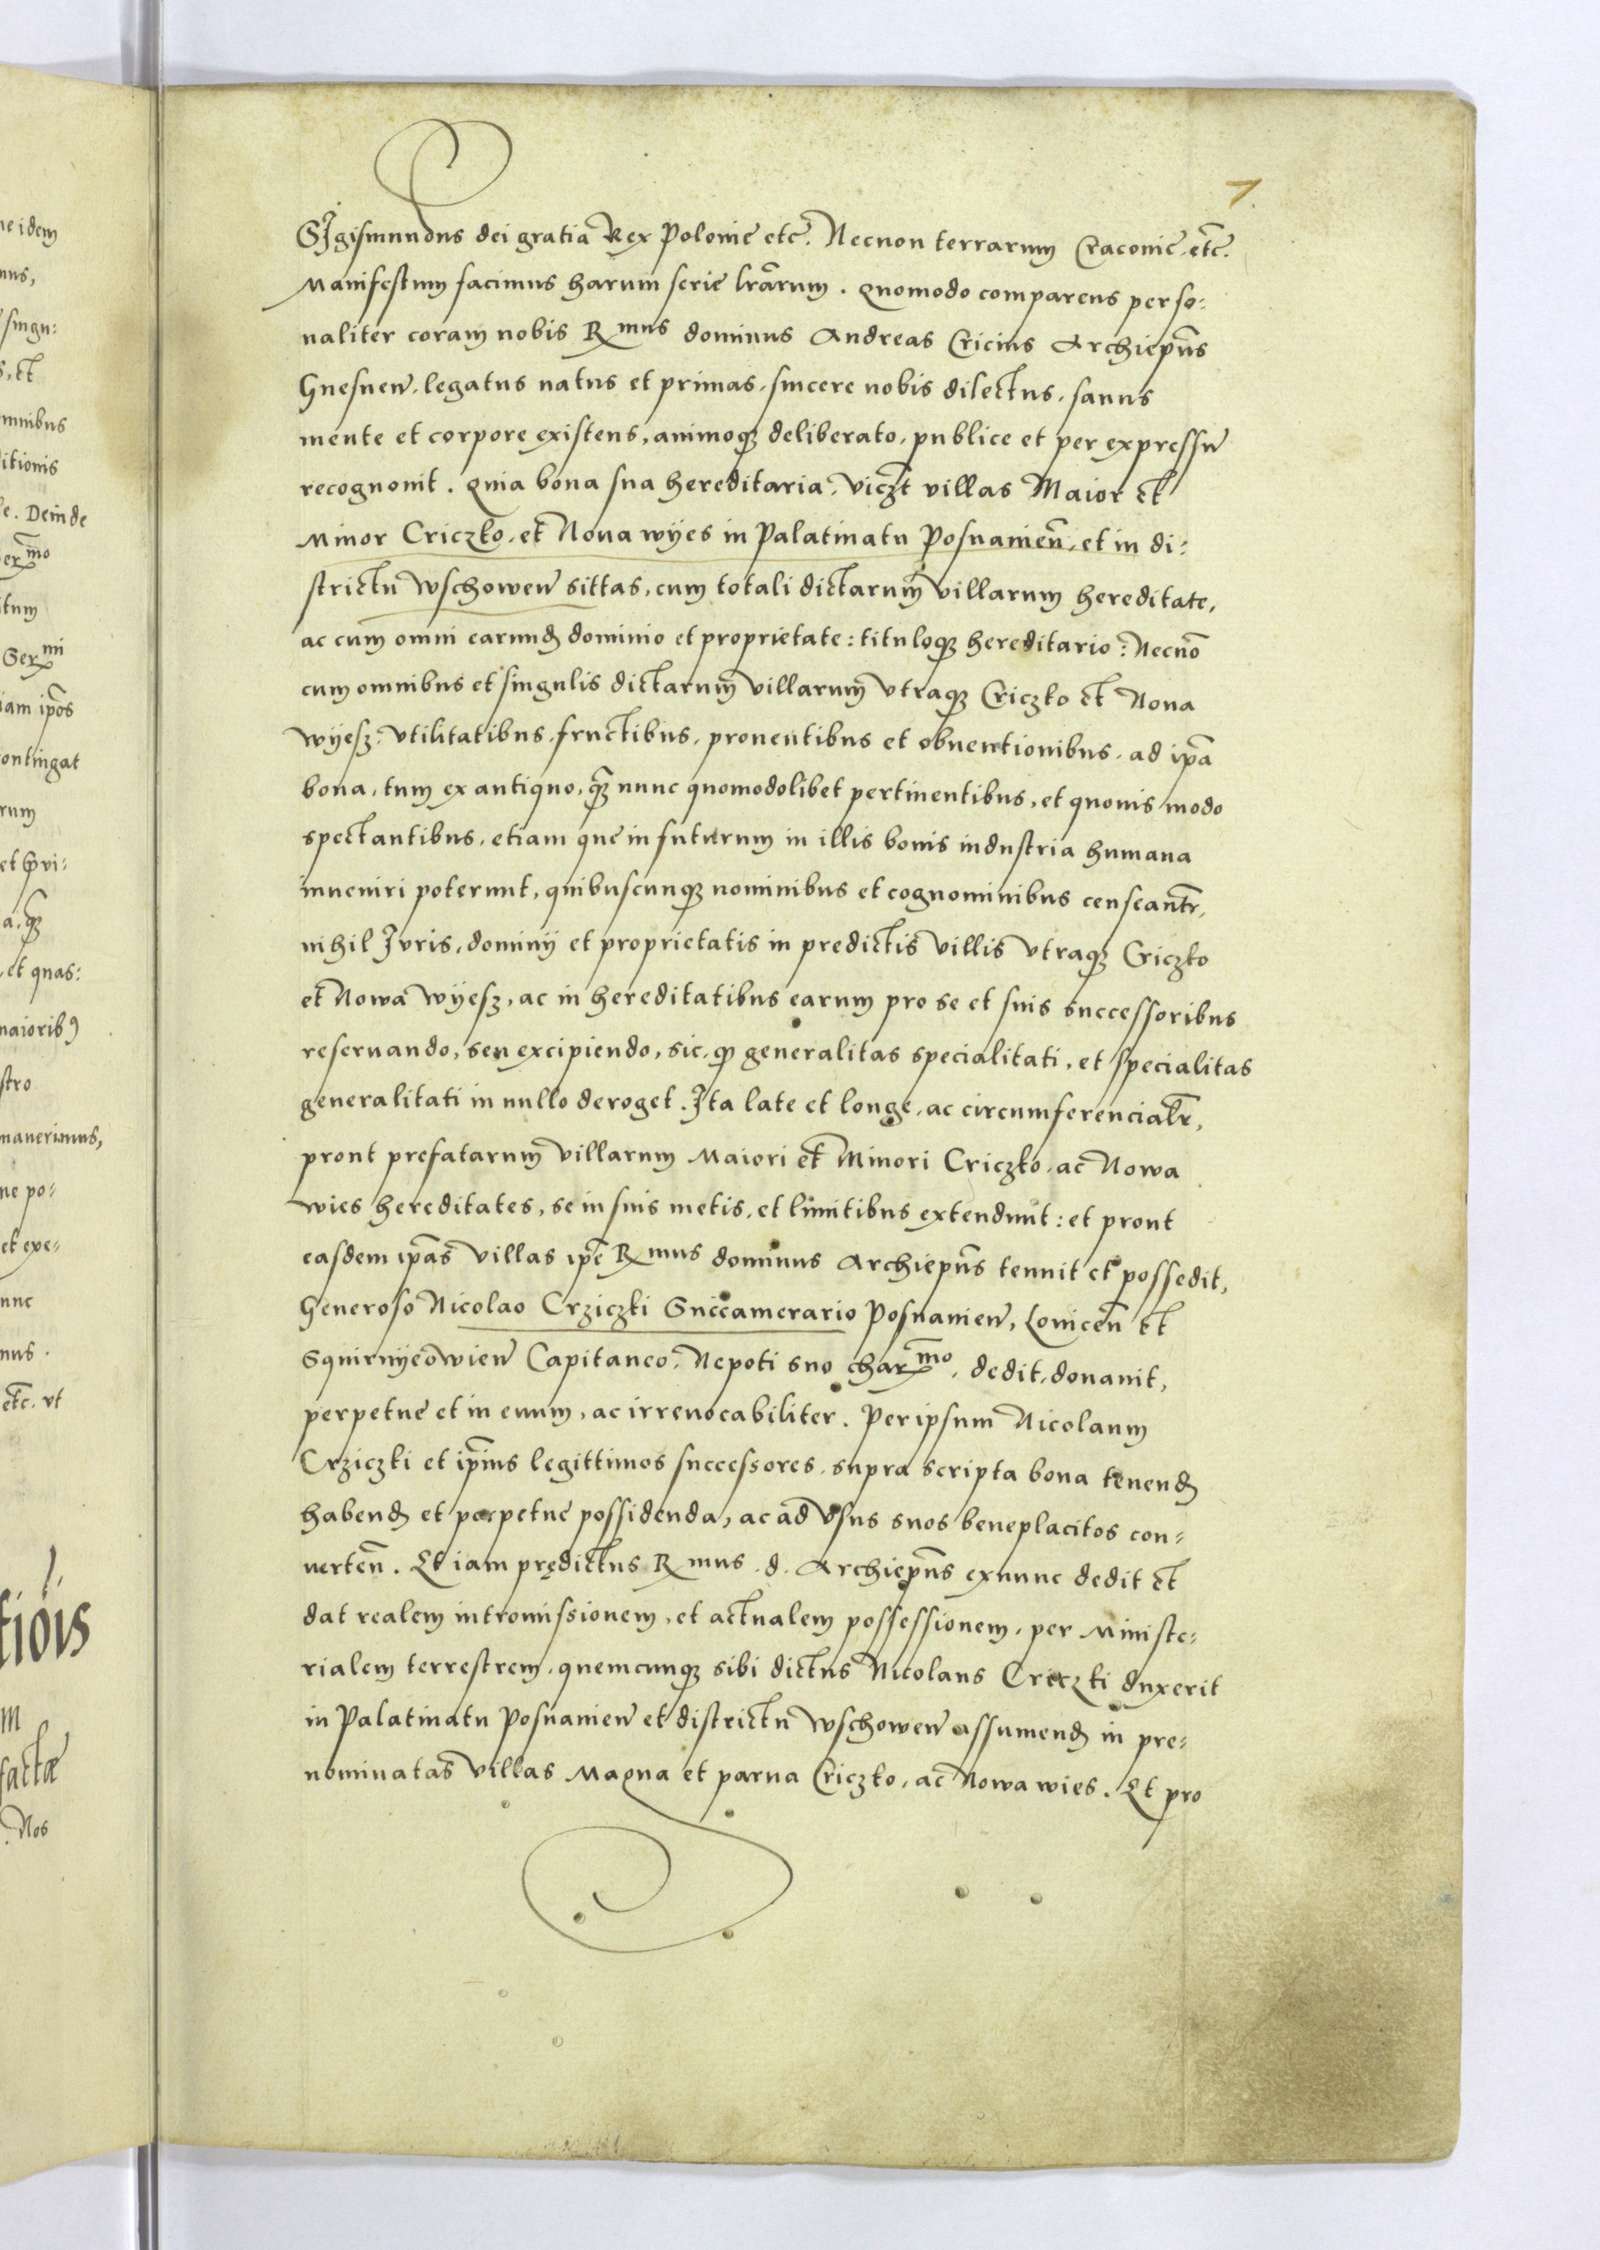 7.
SIgismundus dei gratia Rex Polonie etc̃. Necnon terrarum Craconie. etc̃.
Manifestum facimus harum serie lr̃arum. Quomodo comparens perso:
naliter coram nobis R mus dominus Andreas Cricius Archiep̃us
Gnesnen̄. legatus natus et primas, sincere nobis dilectus, sanus
mente et corpore existens, animoqꝫ deliberato, publice et per expressū
recognouit. Quia bona sua hereditaria, viczt̃ villas Maior et
Minor Criczko, et Noua wyes in Palatinatu Posnanien̄, et in di:
strictu wschowen̄ sittas, cum totali dictarum villarum hereditate,
ac cum omni earund̃ dominio et proprietate: tituloqꝫ hereditario: Necnō
cum omnibus et singulis dictarum villarum vtraqꝫ Criczko et Noua
wyesz: vtilitatibus, fructibus, prouentibus et obuentionibus, ad ip̃a
bona, tum ex antiquo, qꝫ nunc quomodolibet pertinentibus, et quouis modo
spectantibus, etiam que in futurum in illis bonis industria humana
inueniri poterunt, quibuscunqꝫ nominibus et cognominibus censeant̃r,
nihil Iuris, dominij et proprietatis in predictis villis vtraqꝫ Criczko
et Nowa wyesz, ac in hereditatibus earum pro se et suis successoribus
reseruando, seu excipiendo, sic, qꝫ generalitas specialitati, et specialitas
generalitati in nullo deroget. Ita late et longe, ac circumferencialr̃,
prout prefatarum villarum Maiori et Minori Criczko, ac Nowa
wies hereditates, se in suis metis, et limitibus extendunt: et prout
easdem ip̃as villas ip̃e R mus dominus Archiep̃us tenuit et possedit,
Generoso Nicolao Crziczki Succamerario Posnanien̄, Louicen̄ et
Squirnyeowien̄ Capitaneo, Nepoti suo char mo, dedit, donauit,
perpetue et in euum, ac irreuocabiliter. Per ipsum Nicolaum
Crziczki et ip̃ius legittimos successores, supra scripta bona tenend̃
habend̃ et perpetue possidenda, ac ad vsus suos beneplacitos con:
uerten̄. Et iam prędictus R mus. d. Archiep̃us exnunc dedit et
dat realem intromissionem, et actualem possessionem, per Ministe:
rialem terrestrem, quemcunqꝫ sibi dictus Nicolaus Criczki duxerit
in Palatinatu Posnanien̄ et districtu wschowen̄ assumend̃ in pre:
nominatas villas Magna et parua Criczko, ac Nowa wies. Et pro